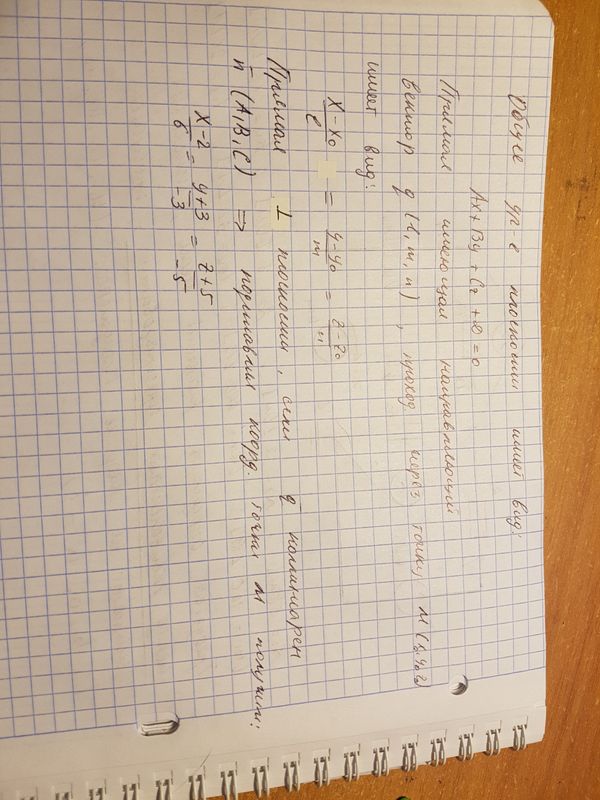 Общее ур-е плоскости имеет вид:
Ax + By + Cz + D = 0
Прямая имеющая направляющий
вектор q (l, m, n), проход через точку M (x₀ y₀ z₀)
имеет вид:
x-x₀/l = y-y₀/m = z-z₀/n
Прямая ⊥ плоскости, если q̅ коллинеарен
n̅ (A, B, C) ⇒ подставим коорд. точки M получим:
x-2/6 = y+3/-3 = z+5/-5